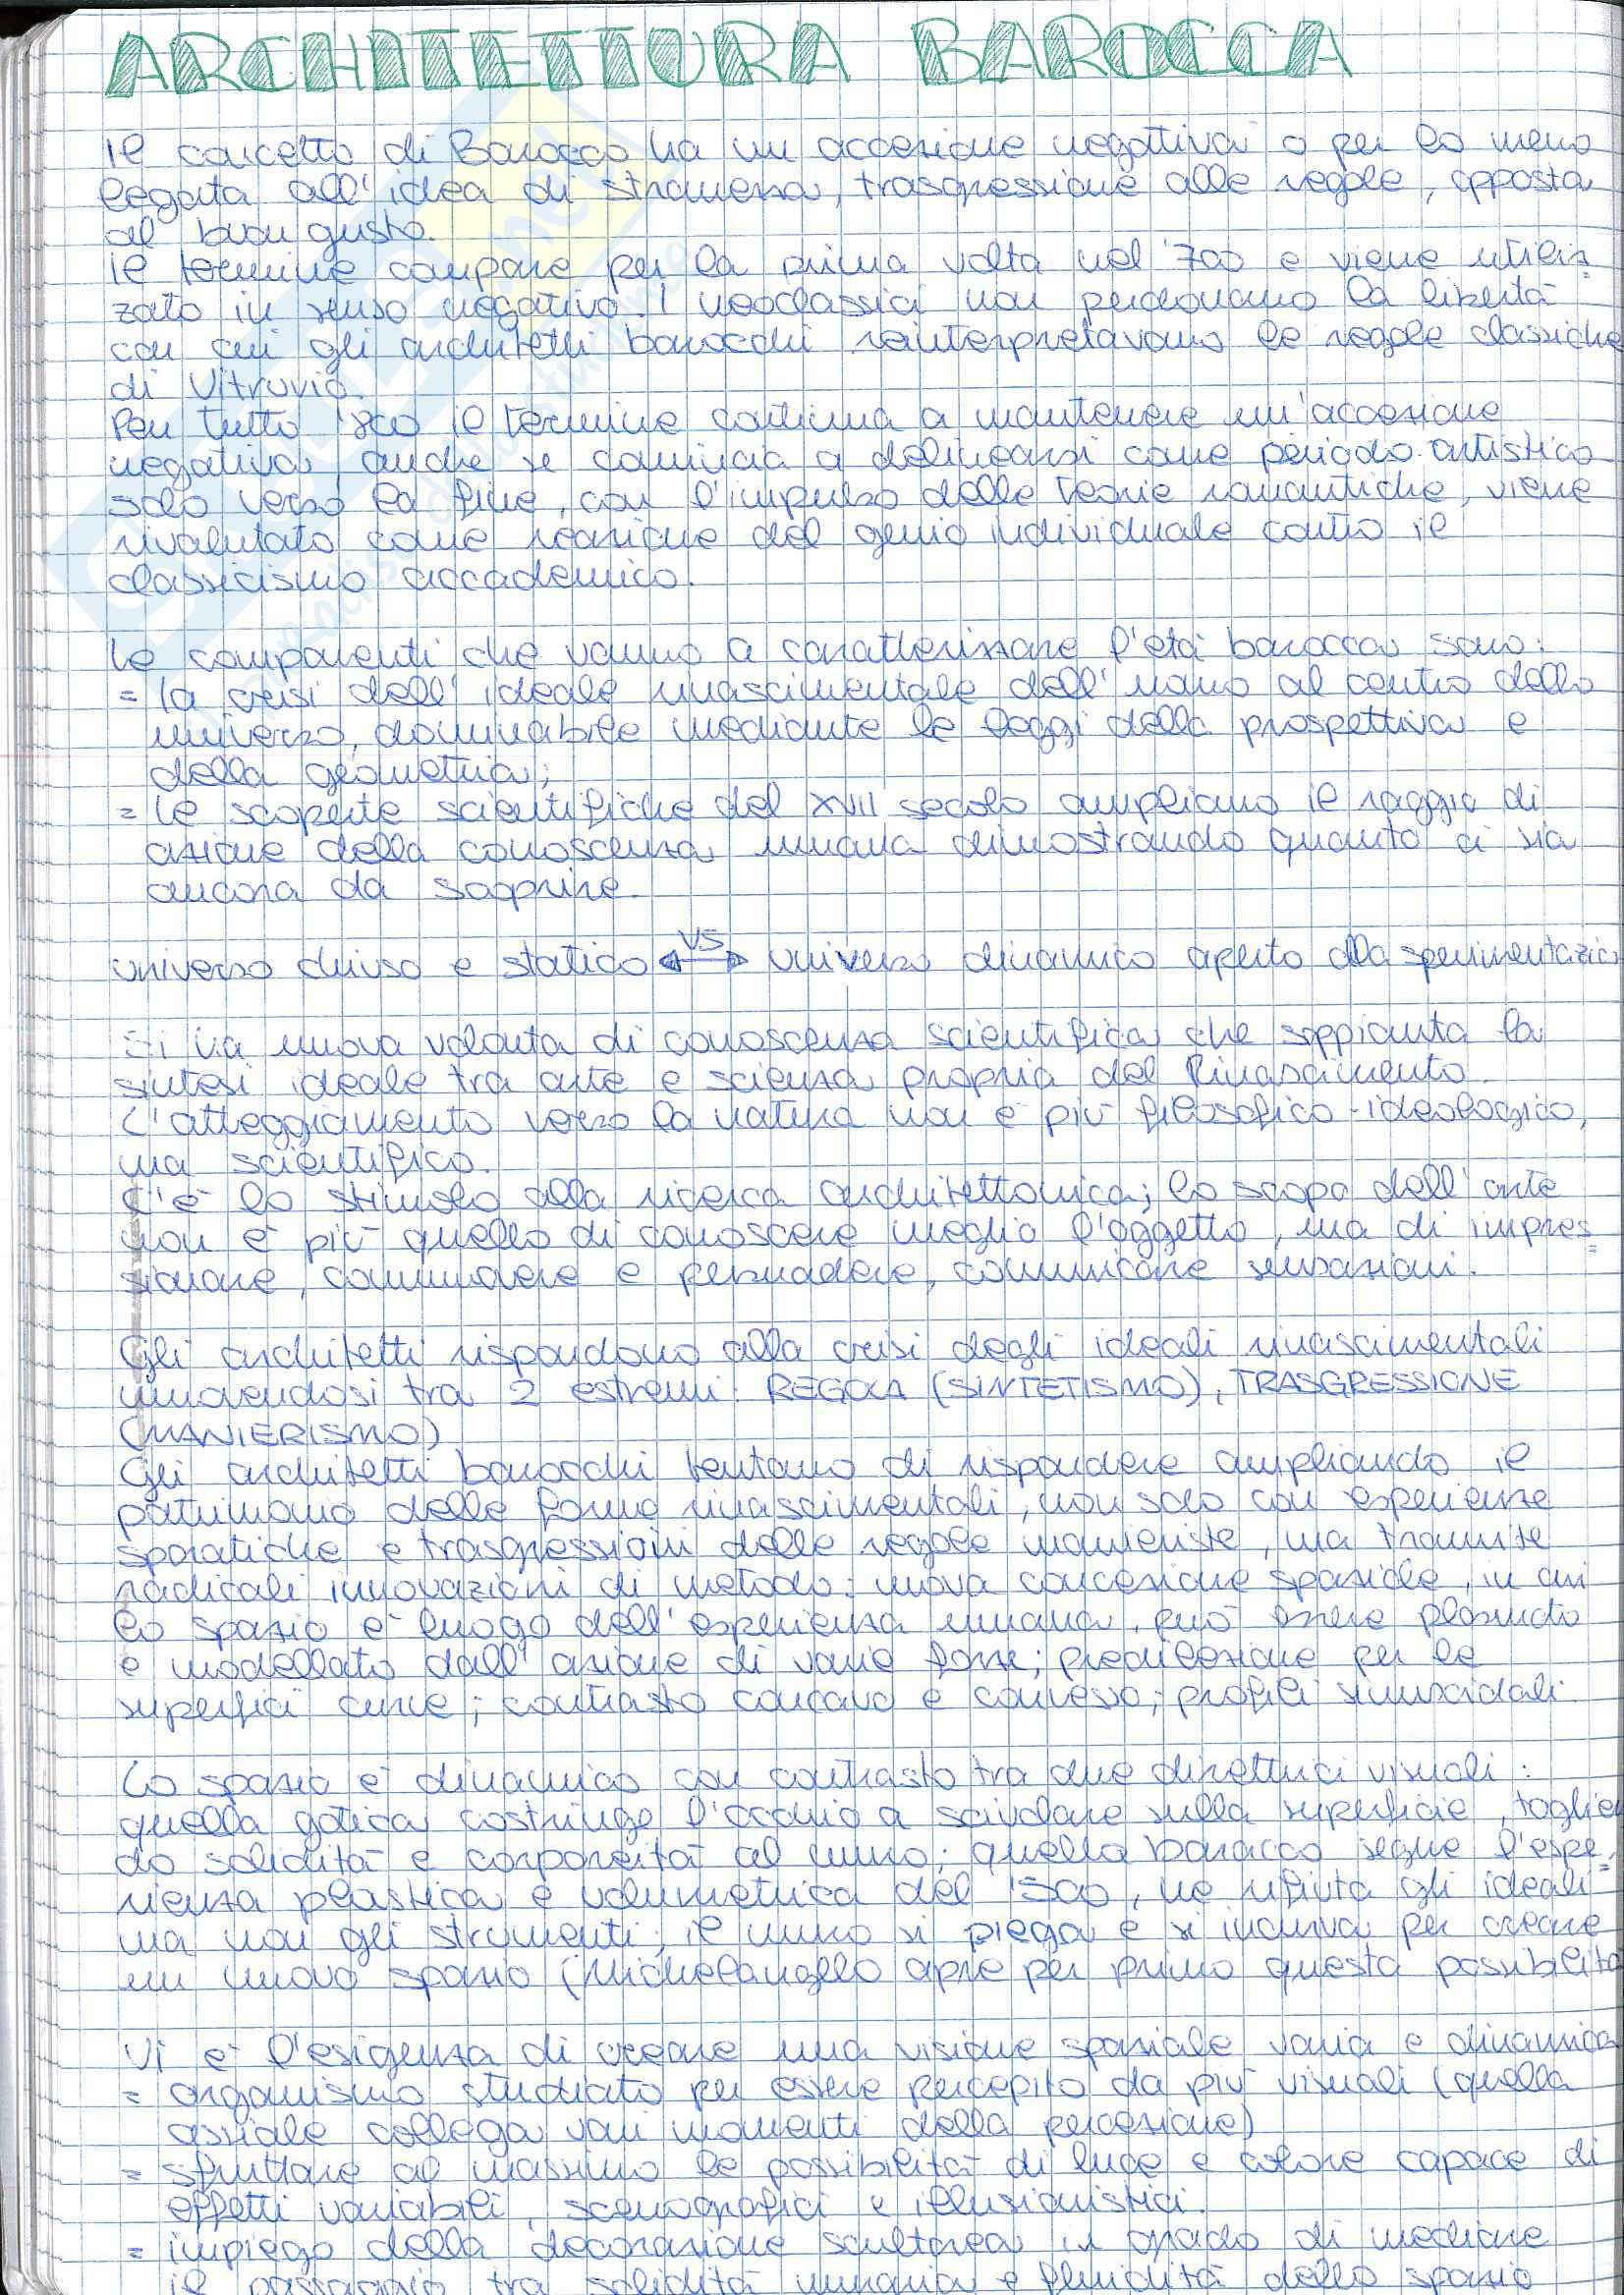 ARCHITETTURA BAROCCA
Il concetto di Barocco ha un accezione negativa o per lo meno
legata all'idea di stranezza, trasgressione alle regole, opposta
al buon gusto.
Il termine compare per la prima volta nel '700 e viene utiliz=
zato in senso negativo. I neoclassici non perdonano la libertà
con cui gli architetti barocchi reinterpretavano le regole classiche
di Vitruvio.
Per tutto '800 il termine continua a mantenere un'accezione
negativa, anche se comincia a delinearsi come periodo artistico
solo verso la fine, con l'impulso delle teorie romantiche, viene
rivalutato come reazione del genio individuale contro il
classicismo accademico.
Le componenti che vanno a caratterizzare l'età barocca sono:
= la crisi dell'ideale rinascimentale dell'uomo al centro dello
universo, dominabile mediante le leggi della prospettiva e
della geometria;
= le scoperte scientifiche del XVII secolo ampliano il raggio di
azione della conoscenza umana dimostrando quanto ci sia
ancora da scoprire.
universo chiuso e statico VS universo dinamico aperto alla sperimentazio
Si ha nuova volontà di conoscenza scientifica che soppianta la
sintesi ideale tra arte e scienza propria del Rinascimento.
L'atteggiamento verso la natura non è più filosofico-ideologico,
ma scientifico.
C'è lo stimolo alla ricerca architettonica; lo scopo dell'arte
non è più quello di conoscere meglio l'oggetto, ma di impres=
sionare, commuovere e persuadere, comunicare sensazioni.
Gli architetti rispondono alla crisi degli ideali rinascimentali
muovendosi tra 2 estremi: REGOLA (SINTETISMO), TRASGRESSIONE
(MANIERISMO)
Gli architetti barocchi tentano di rispondere ampliando il
patrimonio delle forme rinascimentali, non solo con esperienze
sporatiche e trasgressioni delle regole manieriste, ma tramite
radicali innovazioni di metodo: nuova concezione spaziale, in cui
lo spazio è luogo dell'esperienza umana, può essere plasmato
e modellato dall'azione di varie forze; predilezione per le
superfici curve; contrasto concavo e convesso; profili sinusoidali.
Lo spazio è dinamico con contrasto tra due direttrici visuali:
quella gotica costringe l'occhio a scivolare sulla superficie, toglien
do solidità e corporeità al muro; quella barocca segue l'espe=
rienza plastica e volumetrica del '500, ne rifiuta gli ideali
ma non gli strumenti; il muro si piega e si incurva per creare
un nuovo spazio (Michelangelo apre per primo questa possibilità
Vi è l'esigenza di creare una visione spaziale varia e dinamica
= organismo studiato per essere percepito da più visuali (quella
assiale collega vari momenti della percezione)
= sfruttare al massimo le possibilità di luce e colore capace di
effetti variabili, scenografici e illusionistici.
= impiego della decorazione scultorea in grado di mediare
il passaggio tra solidità muraria e fluidità dello spazio